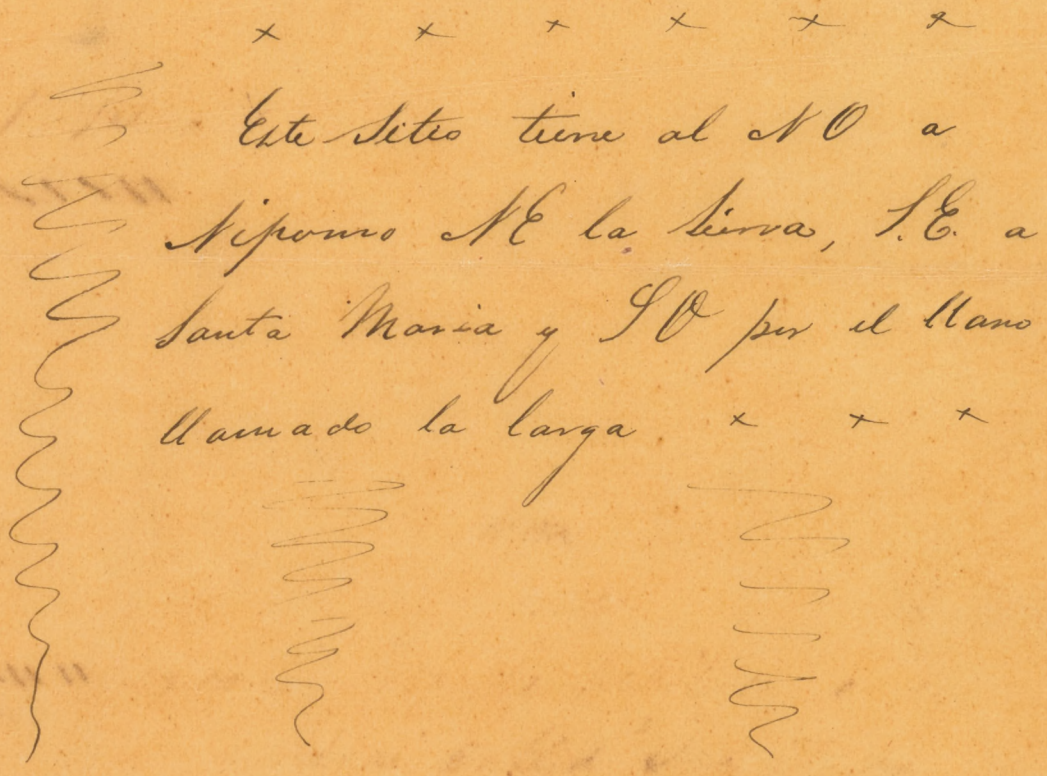 x x x x x x
Este Sitio tiene al NO a
Nipomo NE la Sierra, S.E. a
Santa Maria y SO por el llano
llamado la larga x x x